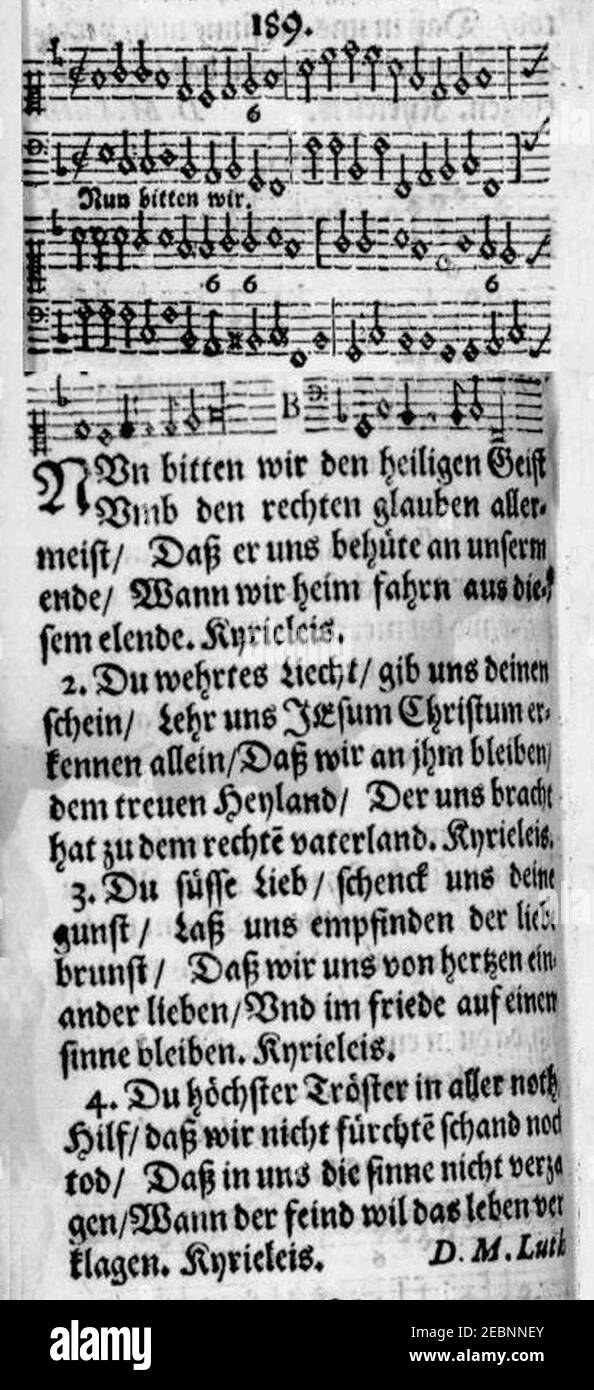 189.
6
Nun bitten wir.
6 6 6
B
NVn bitten wir den heiligen Geist
Vmb den rechten glauben aller-
meist/ Daß er uns behüte an unserm
ende/ Wann wir heim fahrn aus die-
sem elende. Kyrieleis.
2. Du wehrtes Liecht/ gib uns deinen
schein/ Lehr uns JEsum Christum er-
kennen allein/Daß wir an jhm bleiben/
dem treuen Heyland/ Der uns bracht
hat zu dem rechtē vaterland. Kyrieleis.
3. Du süsse Lieb/ schenck uns deine
gunst/ Laß uns empfinden der lieb.
brunst/ Daß wir uns von hertzen ein-
ander lieben/Vnd im friede auf einen
sinne bleiben. Kyrieleis.
4. Du höchster Tröster in aller noth
Hilf/daß wir nicht fürchtē schand noch
tod/ Daß in uns die sinne nicht verza
gen/Wann der feind wil das leben ver
klagen. Kyrieleis. D. M. Luth
alamy
Image ID: 2EBNNEY
www.alamy.com